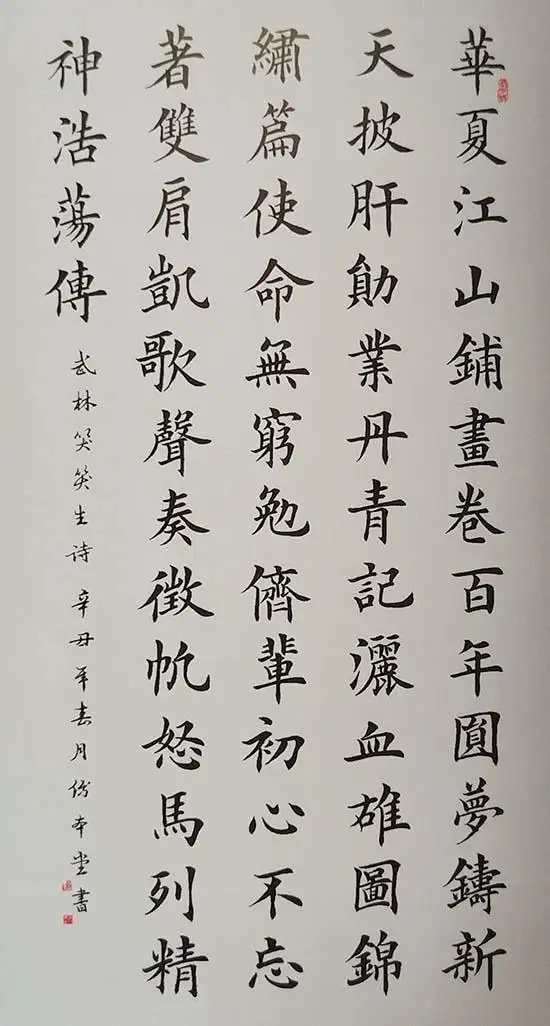 華夏江山鋪畫卷百年圓夢鑄新
天披肝勛業丹青記灑血雄圖錦
繡篇使命無窮勉儕輩初心不忘
著雙肩凱歌聲奏徵帆怒馬列精
神浩蕩傳
武林笑笑生诗 辛丑年春月本堂書